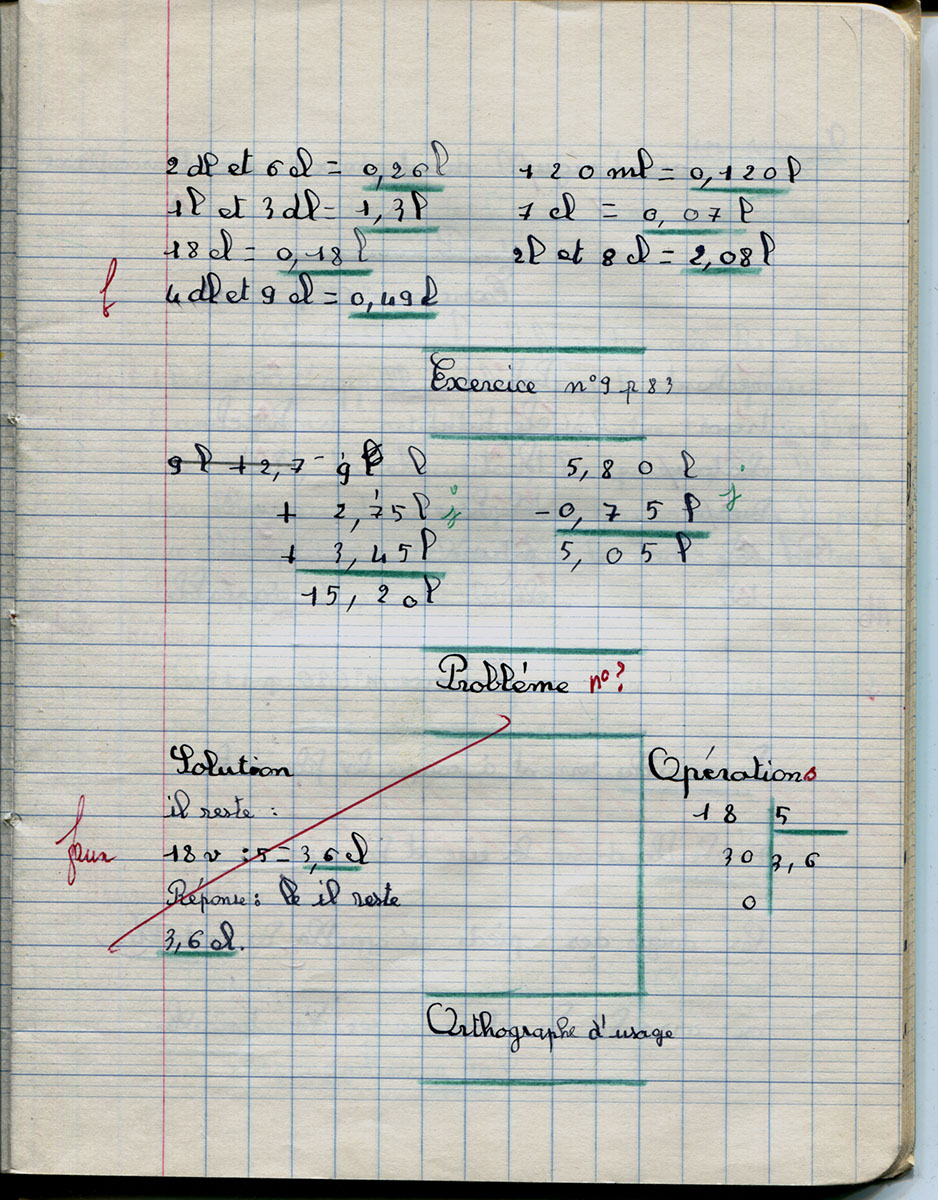 2 dl et 6 cl = 0,26 l 120 ml = 0,120 l
1 l et 3 dl = 1,3 l 7 cl = 0,07 l
18 cl = 0,18 l 2 l et 8 cl = 2,08 l
4 dl et 9 cl = 0,49 l
Exercice n° 9 p 83
9 l + 2,7 9 l 5,80 l
+ 2,75 l j - 0,75 l j
+ 3,45 l 5,05 l
15,20 l
Probléme n°?
Solution Opérations
il reste : 18 5
18 v : 5 = 3,6 cl 30 3,6
faux
Réponse : il reste 0
3,6 cl.
Orthographe d'usage